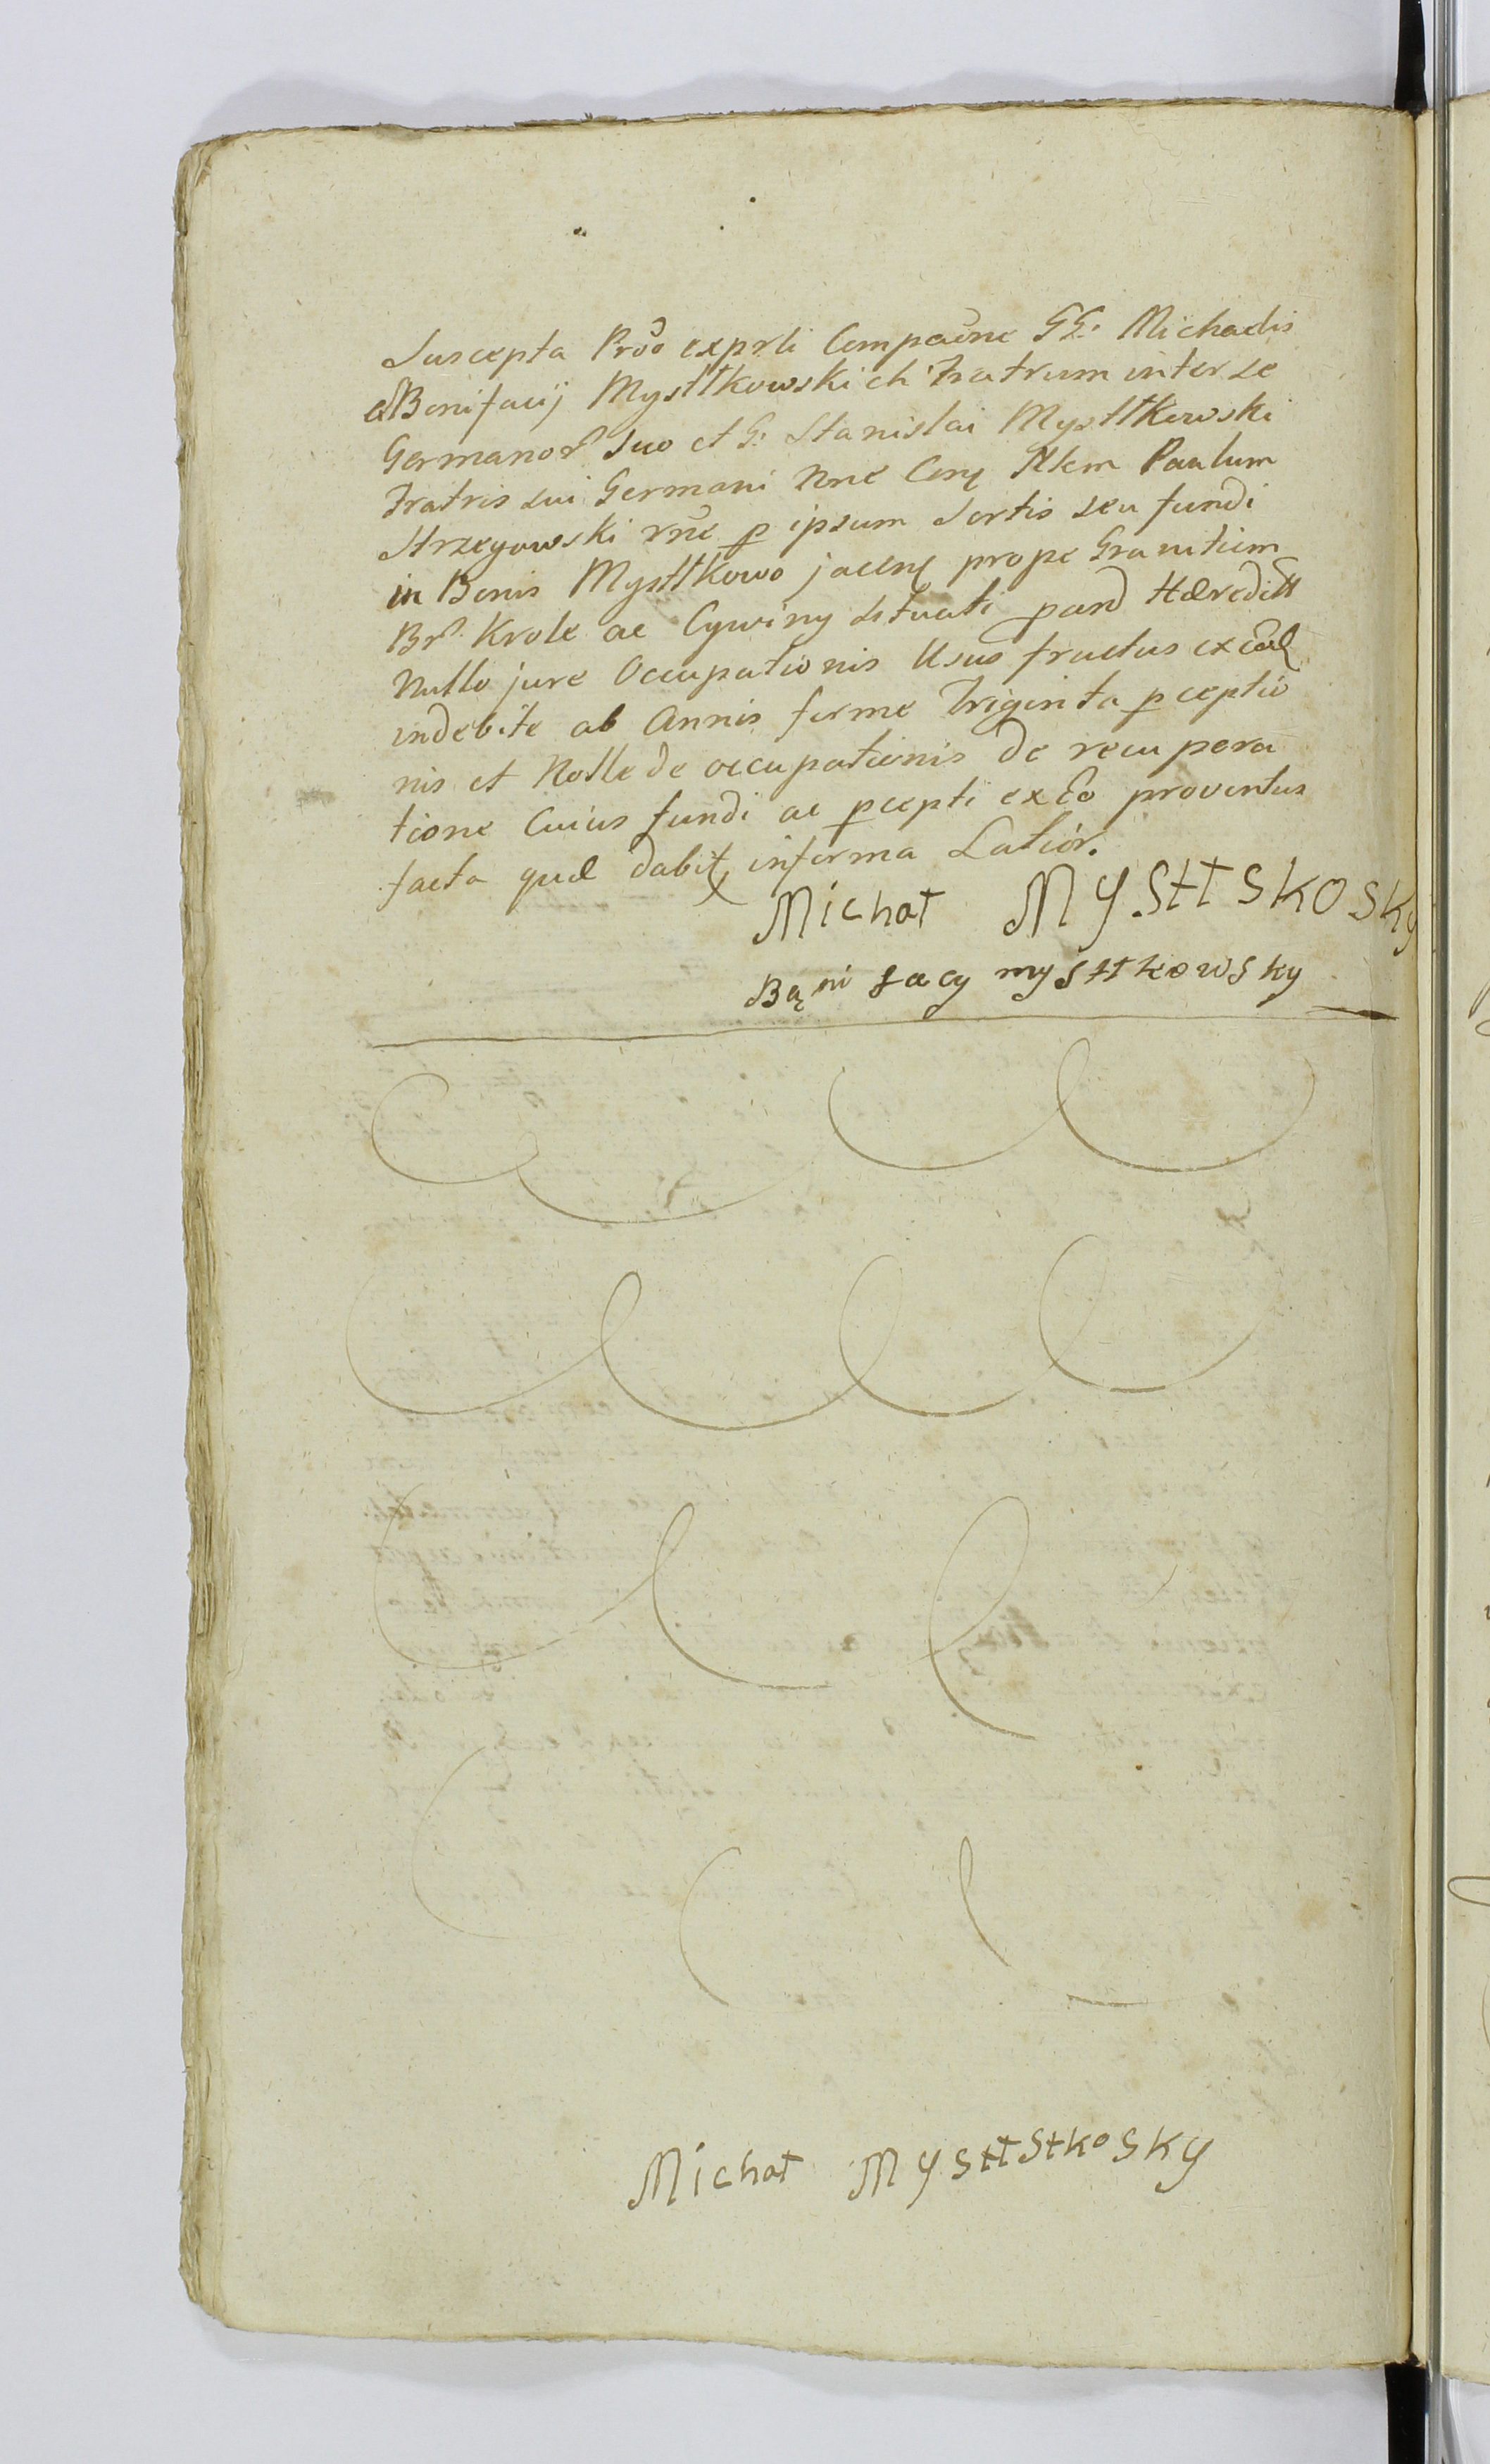 Suscepta Prōo exprli Compaōne GG: Michaelis
& Bonifacij Mysttkowskich Fratrum inter se
Germanor Suo et G: Stanislai Mysttkowski
Fratris sui Germani Nne Con Mlem Paulum
Strzegowski rñe p ipsum Sortis seu fundi
in Bonis Mysttkowo jacen prope Granitiem
Br Krole ac Cywiny Situati pand Hæreditt
Nullo jure Occupationis Usus fructus exēo
indebite ab Annis ferme Triginta pceptio
nis et Nolle de occupationis de recupera
tione Cuius fundi ac pcepti exēo proventus
facta quæ dabit informa Latiōr.
Michał MYSttSKOSKy
Bąni facy mysttkowsky
Michał MysttStkosky